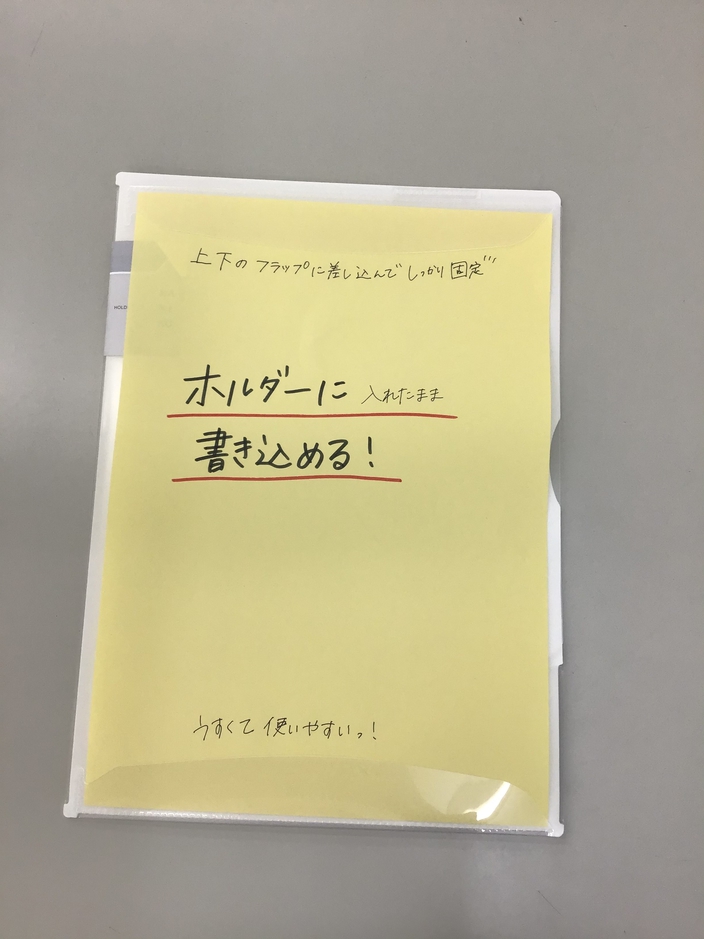 上下の フラップに差し込んで しっかり固定
ホルダーに 入れたまま
書き込める！
うすくて 使いやすいっ！